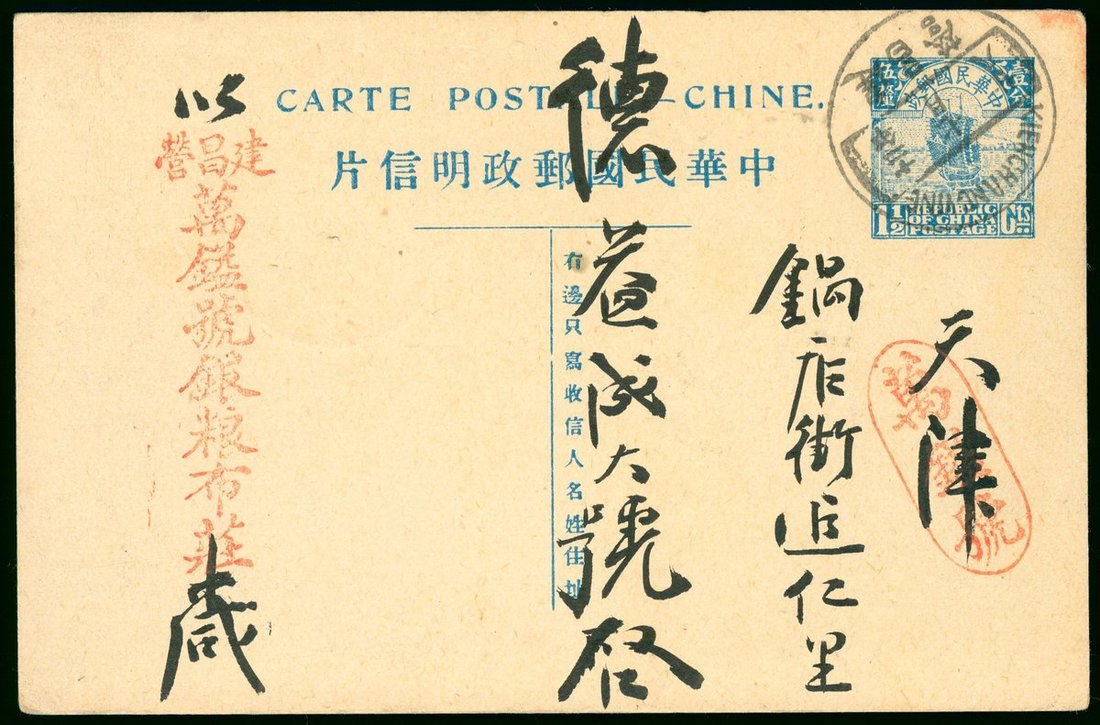 CARTE POSTALE—CHINE.
中華民國郵政明信片
中華民國郵政
壹分
伍釐
1½ REPUBLIC OF CHINA POSTAGE Cts
KIENCHANGYING
天津
鍋店街追仁里
德蒼成大號啓
右邊只寫收信人名姓住址
建昌營
萬鎰號銀粮布莊
萬鎰號